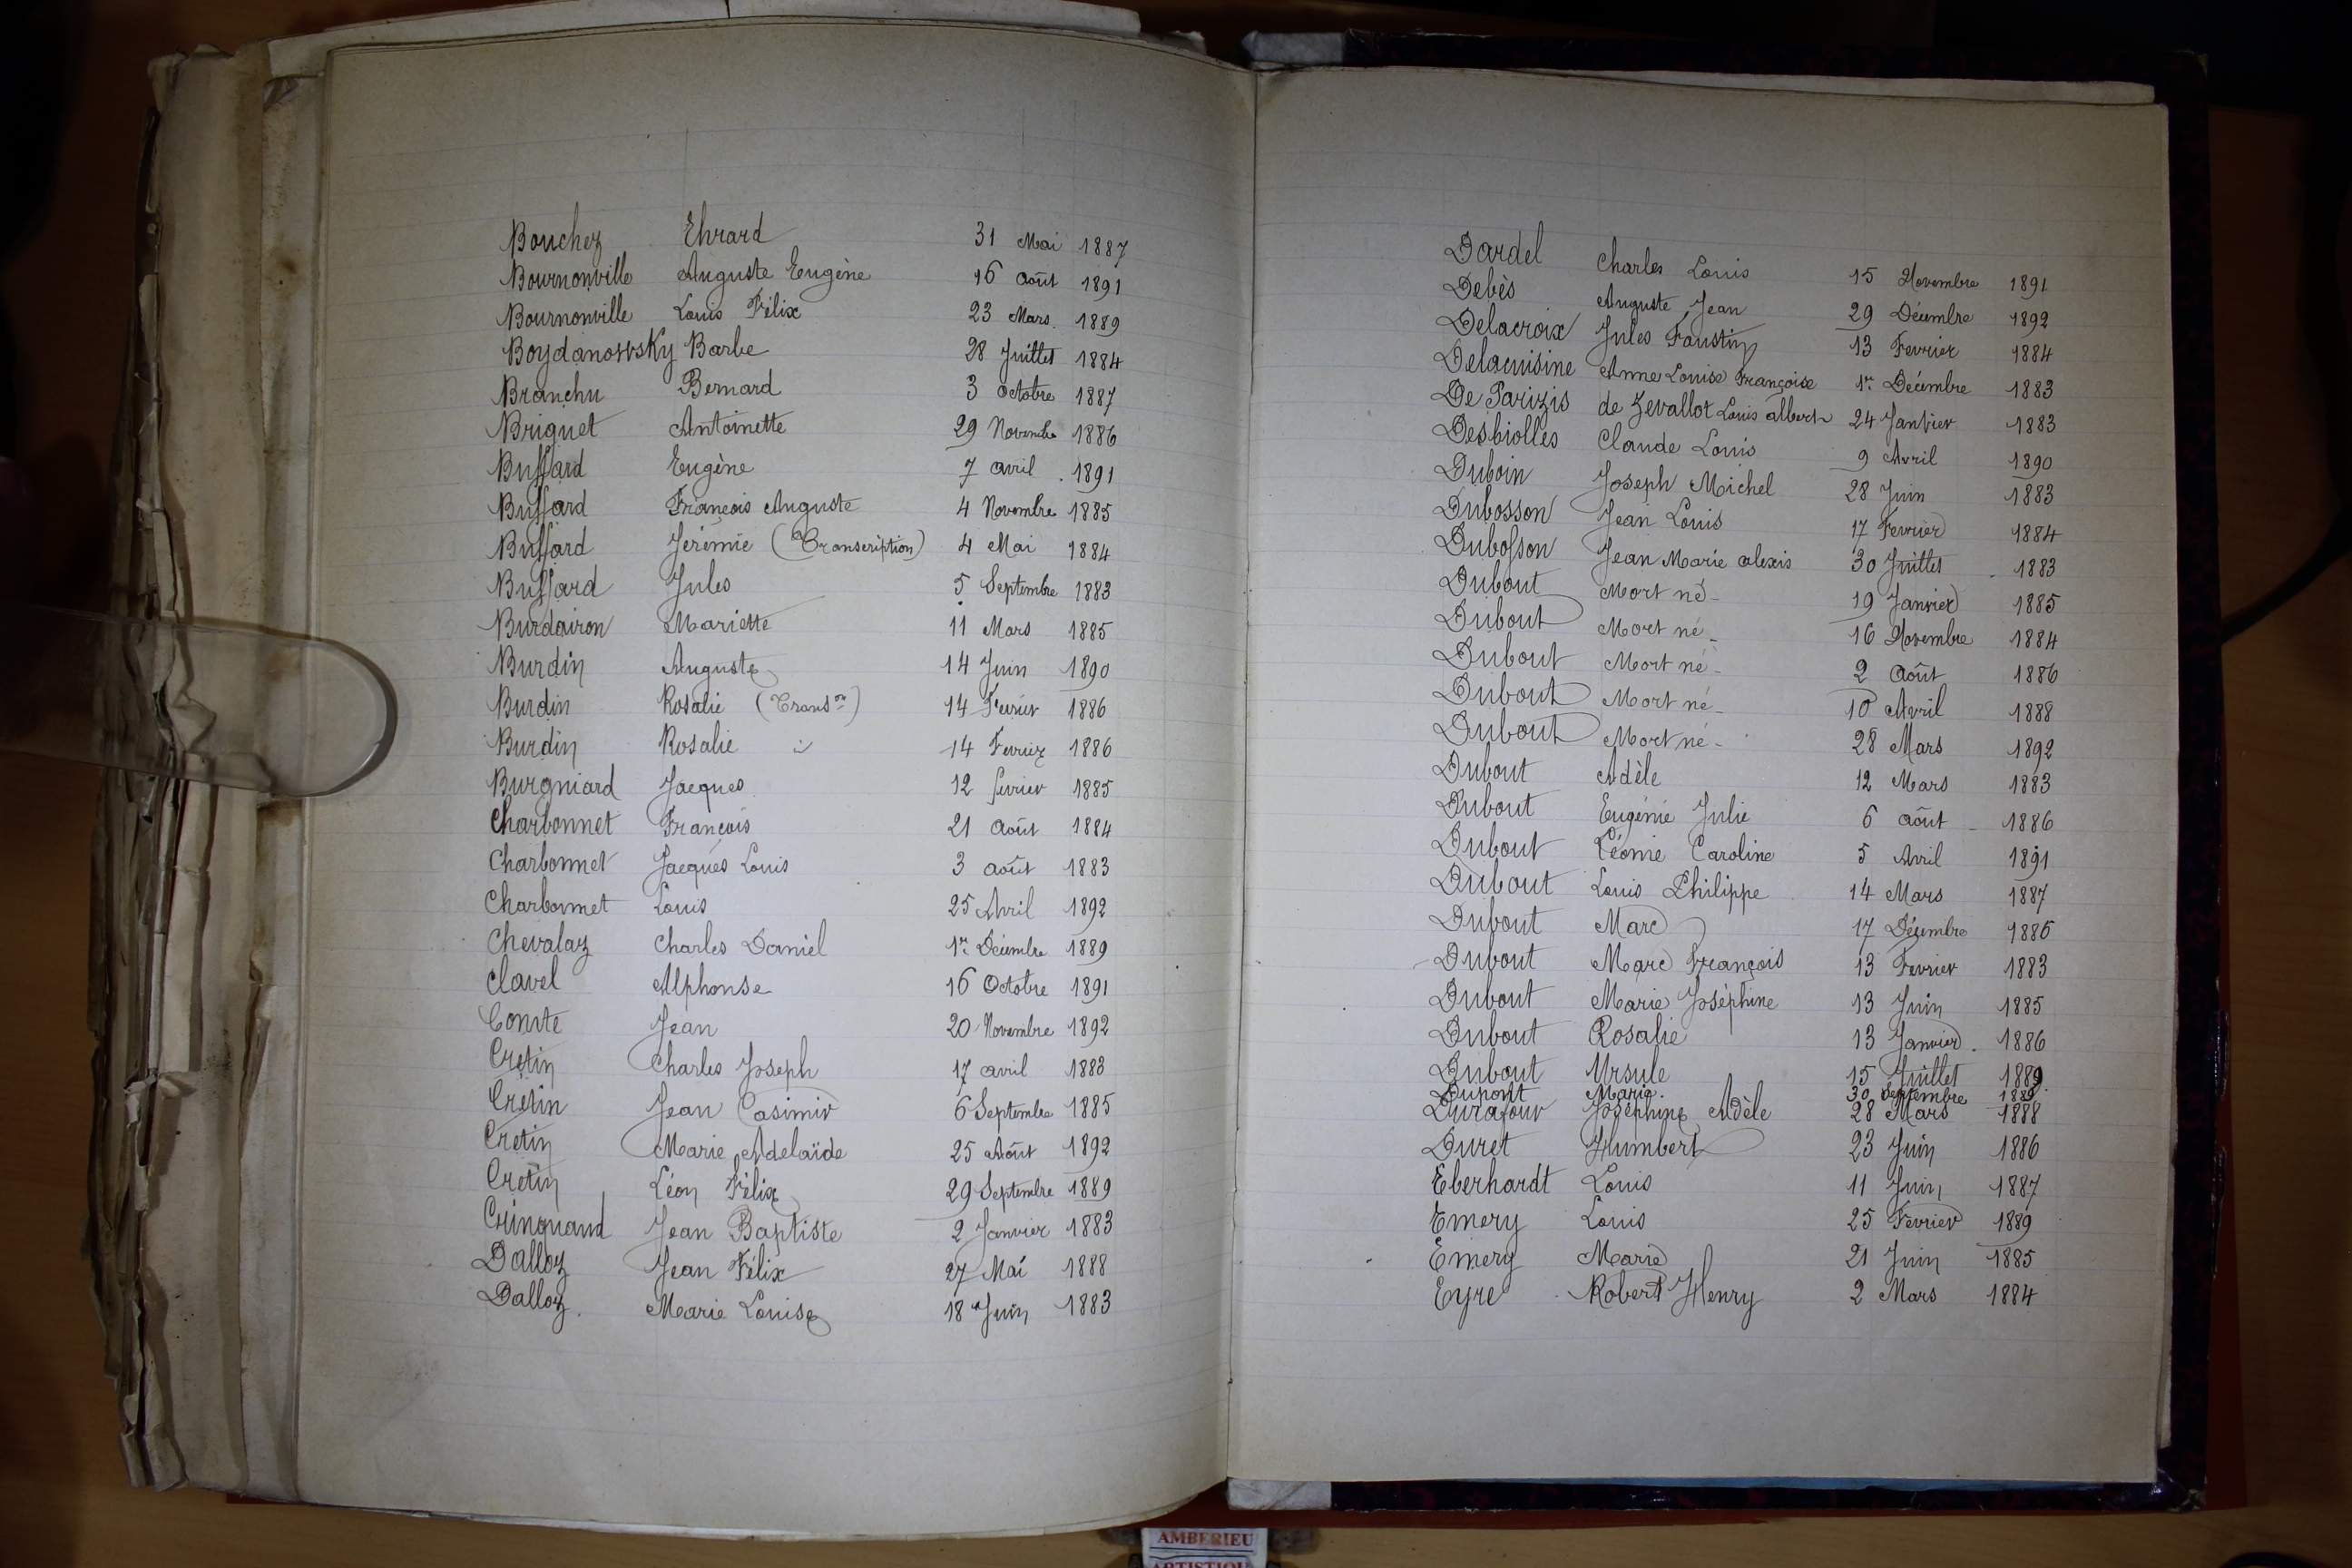 Bouchez Ehrard 31 Mai 1887
Bournonville Auguste Eugène 16 août 1891
Bournonville Louis Félix 23 Mars. 1889
Boydanowsky Barbe 28 Juillet 1884
Branchu Bernard 3 octobre 1887
Briquet Antoinette 29 Novembre 1886
Buffard Eugène 7 avril 1891
Buffard François Auguste 4 Novembre 1885
Buffard Jérémie (Transcription) 4 Mai 1884
Buffard Jules 5 Septembre 1883
Burdairon Mariette 11 Mars 1885
Burdin Auguste 14 Juin 1890
Burdin Rosalie (Trans on) 14 Février 1886
Burdin Rosalie 14 Fevrier 1886
Burgniard Jacques 12 février 1885
Charbonnet François 21 août 1884
Charbonnet Jacques Louis 3 août 1883
Charbonnet Louis 25 Avril 1892
Chevalaz Charles Daniel 1er Décembre 1889
Clavel Alphonse 16 Octobre 1891
Comte Jean 20 Novembre 1892
Cretin Charles Joseph 17 avril 1883
Cretin Jean Casimir 6 Septembre 1885
Cretin Marie Adelaïde 25 Août 1892
Cretin Léon Félix 29 Septembre 1889
Crinquand Jean Baptiste 2 Janvier 1883
Dalloz Jean Félix 27 Mai 1888
Dalloz. Marie Louise 18 Juin 1883
Dardel Charles Louis 15 Novembre 1891
Debès Auguste Jean 29 Décembre 1892
Delacroix Jules Faustin 13 Fevrier 1884
Delacuisine Anne Louise Françoise 1er Décembre 1883
De Parizis de Zevallot Louis albert 24 Janvier 1883
Desbiolles Claude Louis 9 Avril 1890
Duboin Joseph Michel 28 Juin 1883
Dubosson Jean Louis 17 Fevrier 1884
Dubosson Jean Marie alexis 30 Juillet 1883
Dubout Mort né- 19 Janvier 1885
Dubout Mort né- 16 Novembre 1884
Dubout Mort né- 2 août 1886
Dubout Mort né- 10 Avril 1888
Dubout Mort né- 28 Mars 1892
Dubout Adèle 12 Mars 1883
Dubout Eugénie Julie 6 août 1886
Dubout Léonie Caroline 5 Avril 1891
Dubout Louis Philippe 14 Mars 1887
Dubout Marc 17 Décembre 1885
Dubout Marc François 13 Fevrier 1883
Dubout Marie Joséphine 13 Juin 1885
Dubout Rosalie 13 Janvier. 1886
Dubout Ursule 15 Juillet 1889
Dupont Marie. 30 Septembre 1889
Durafour Joséphine Adèle 28 Mars 1888
Duret Humbert 23 Juin 1886
Eberhardt Louis 11 Juin 1887
Emery Louis 25 Fevrier 1889
Emery Marie 21 Juin 1885
Eyre Robert Henry 2 Mars 1884
AMBERIEU